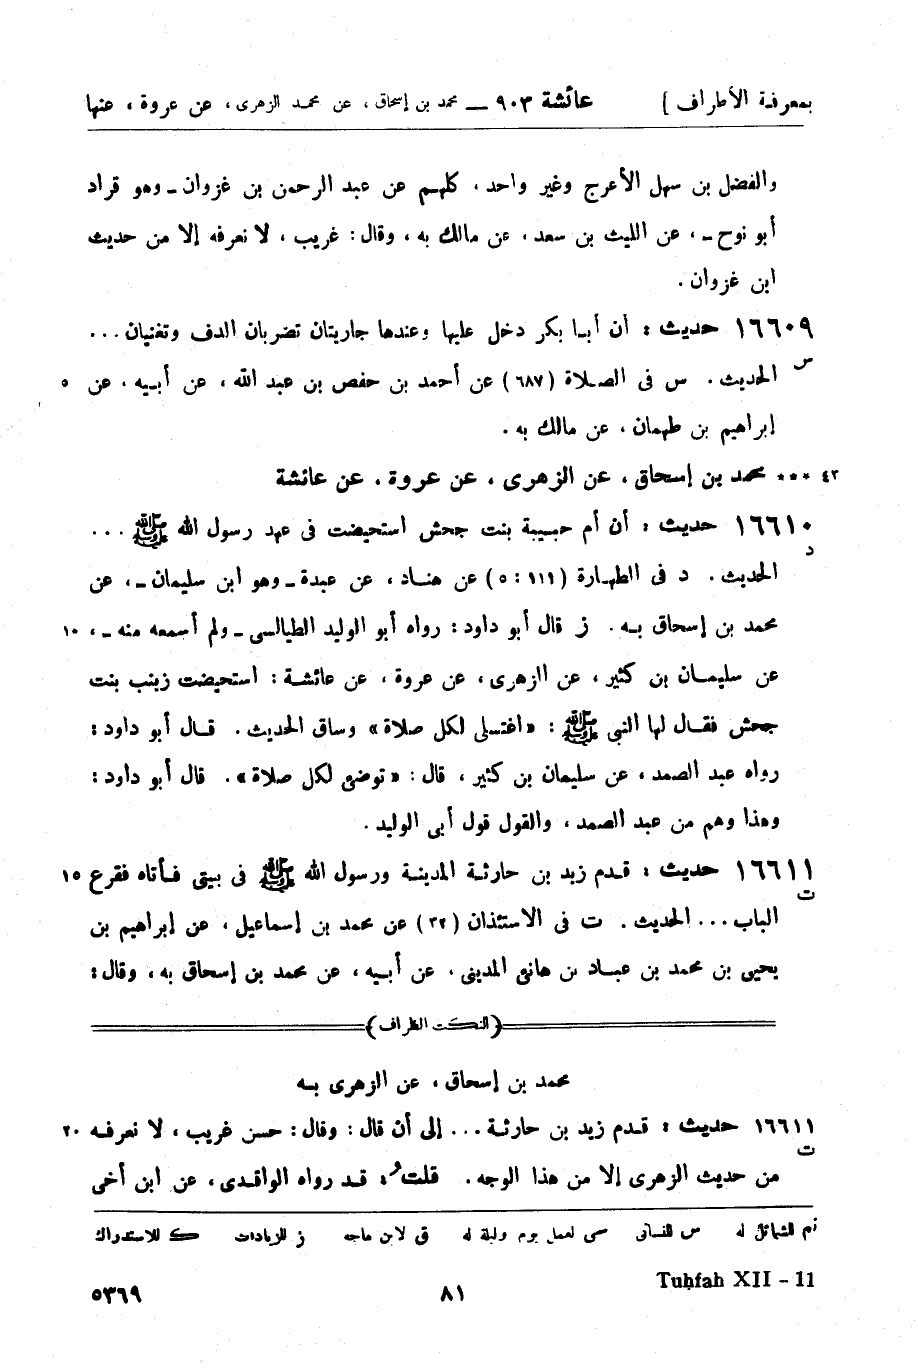 بمعرفة الأطراف ] عائشة ٩٠٣ ـــ محمد بن إسحاق ، عن محمد الزهرى ، عن عروة ، عنها
والفضل بن سهل الأعرج وغير واحد ، كلهم عن عبد الرحمن بن غزوان ـ وهو قراد
أبو نوح ـ ، عن الليث بن سعد ، عن مالك به ، وقال : غريب ، لا نعرفه إلا من حديث
ابن غزوان .
١٦٦٠٩ حديث : أن أبا بكر دخل عليها وعندها جاريتان تضربان الدف وتغنيان ...
س الحديث . س فى الصلاة ( ٦٨٧ ) عن أحمد بن حفص بن عبد الله ، عن أبيه ، عن ٥
إبراهيم بن طهمان ، عن مالك به .
٤٣ *** محمد بن إسحاق ، عن الزهرى ، عن عروة ، عن عائشة
١٦٦١٠ حديث : أن أم حبيبة بنت جحش استحيضت فى عهد رسول الله ﷺ ...
د الحديث . د فى الطهارة ( ١١١ : ٥ ) عن هناد ، عن عبدة ـ وهو ابن سليمان ـ ، عن
محمد بن إسحاق به . ز قال أبو داود : رواه أبو الوليد الطيالسى ـ ولم أسمعه منه ـ ، ١٠
عن سليمان بن كثير ، عن الزهرى ، عن عروة ، عن عائشة : استحيضت زينب بنت
جحش فقال لها النبى ﷺ : « اغتسلى لكل صلاة » وساق الحديث . قال أبو داود :
رواه عبد الصمد ، عن سليمان بن كثير ، قال : « توضئى لكل صلاة » . قال أبو داود :
وهذا وهم من عبد الصمد ، والقول قول أبى الوليد .
١٦٦١١ حديث : قدم زيد بن حارثة المدينة ورسول الله ﷺ فى بيتى فأتاه فقرع ١٥
ت الباب ... الحديث . ت فى الاستئذان ( ٣٢ ) عن محمد بن إسماعيل ، عن إبراهيم بن
يحيى بن محمد بن عباد بن هانئ المدينى ، عن أبيه ، عن محمد بن إسحاق به ، وقال :
( النكت الظراف )
محمد بن إسحاق ، عن الزهرى به
١٦٦١١ حديث : قدم زيد بن حارثة ... إلى أن قال : وقال : حسن غريب ، لا نعرفه ٢٠
ت من حديث الزهرى إلا من هذا الوجه . قلت : قد رواه الواقدى ، عن ابن أخى
تم للشمائل له س للنسائى سى لعمل يوم وليلة له ق لابن ماجه ز للزيادات ك للاستدراك
Tuḥfah XII - 11
٨١
٥٣٦٩